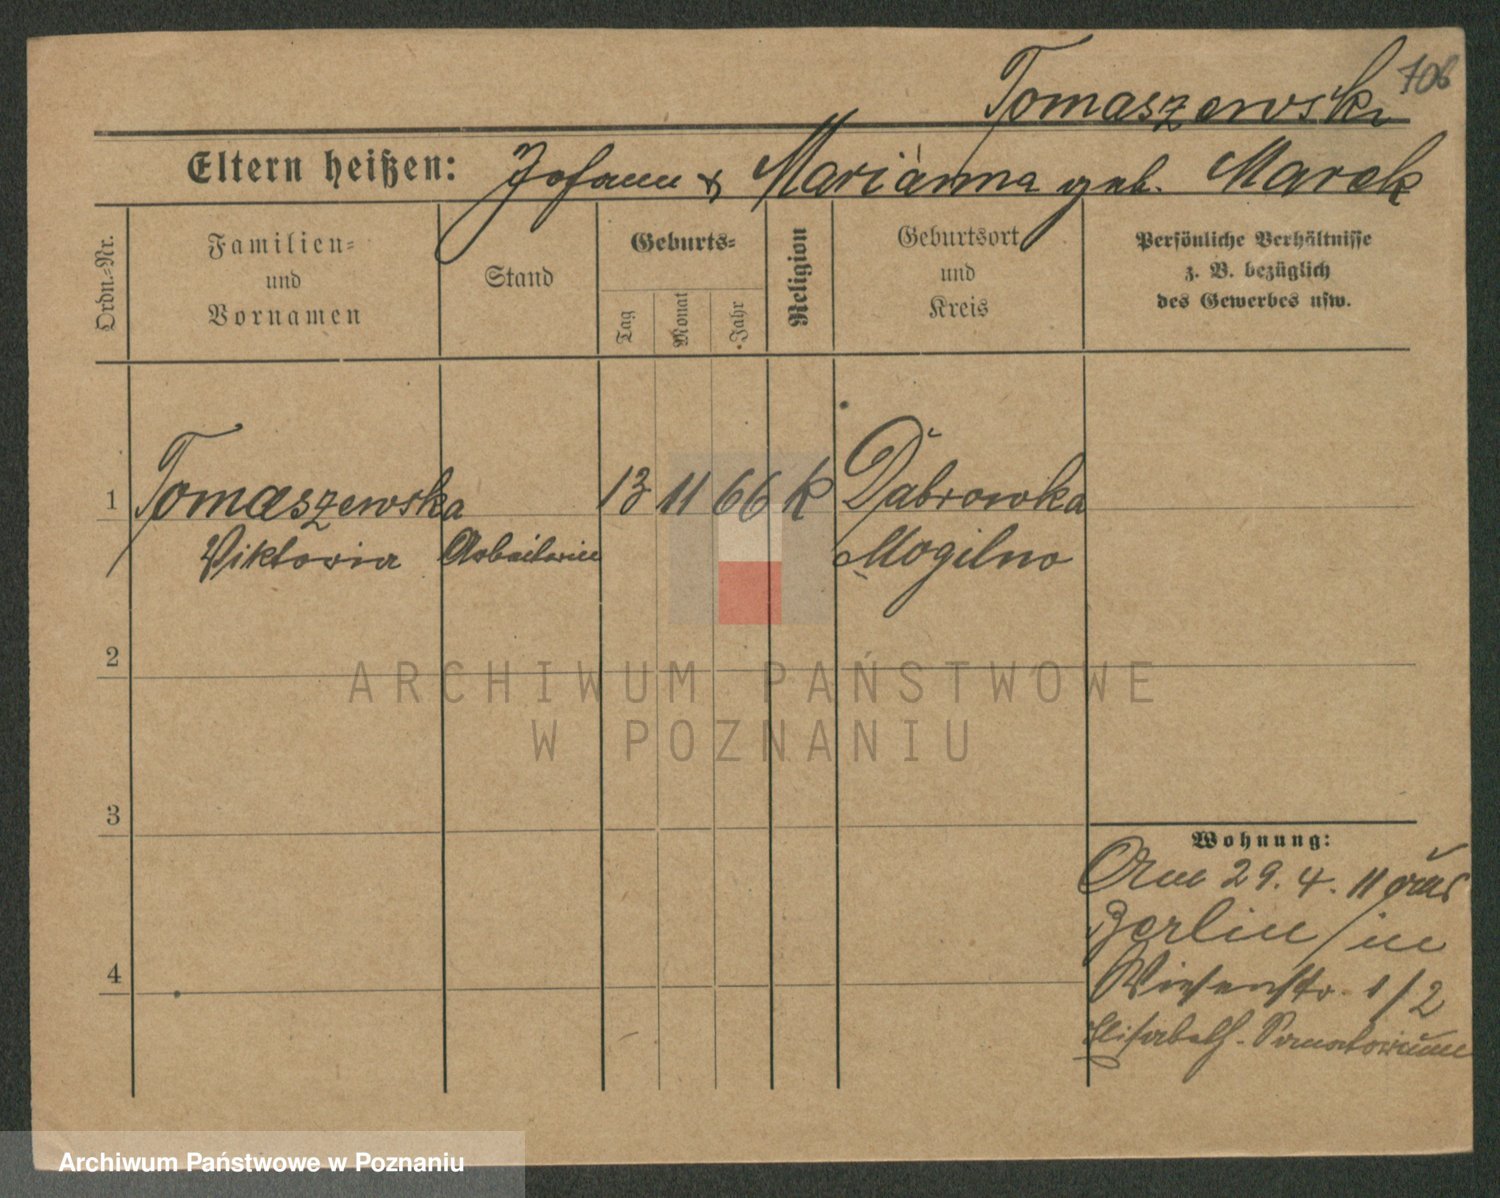 Tomaszewski 706
Eltern heißen: Johann & Marianna geb. Marek
Ordn.-Nr.
Familien-
und
Vornamen
Stand
Geburts-
Tag
Monat
Jahr
Religion
Geburtsort
und
Kreis
Persönliche Verhältnisse
z. B. bezüglich
des Gewerbes usw.
1 Tomaszewska 13 11 66 k Dabrowka
Viktoria Arbeiterin Mogilno
2
ARCHIWUM PAŃSTWOWE
W POZNANIU
3
Wohnung:
Am 29. 4. 11 aus
Berlin / in
Wiesenstr. 1/2
Elisabeth-Sanatorium
4
Archiwum Państwowe w Poznaniu